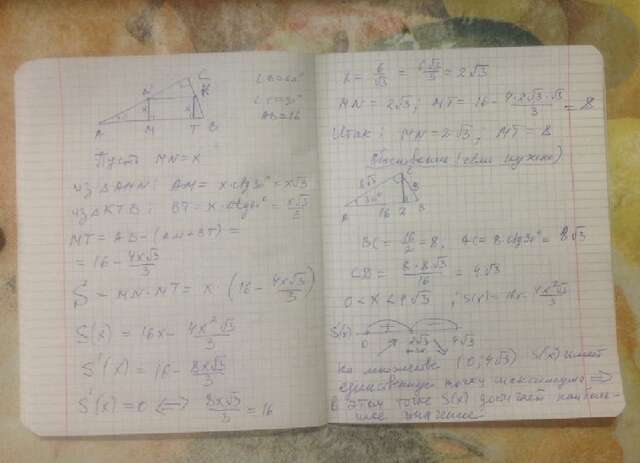 C
N
K
x
x
A
M
T
B
∠B=60°
∠A=30°
AB=16
Пусть MN=x
из ΔAMN: AM= x·ctg30°=x√3
из ΔKTB: BT= x·ctg60°= x√3/3
MT= AB-(AM+BT)=
= 16- 4x√3/3
S = MN·MT= x·(16- 4x√3/3)
S(x)= 16x- 4x²√3/3
S'(x)= 16- 8x√3/3
S'(x)=0 <=> 8x√3/3 = 16
x= 6/√3 = 6√3/3 = 2√3
MN= 2√3; MT= 16- 4·2√3·√3/3 = 8
Итак: MN=2√3; MT= 8
(если нужно)
C
8√3
8
30°
A
16
B
BC= 16/2=8, AC= 8·ctg30°= 8√3
= 8·8√3/16 = 4√3
0<x<4√3; S(x)=16x- 4x²√3/3
S'(x)
+
-
0
2√3
4√3
на множестве (0;4√3) S(x) имеет
единственную точку максимума =>
в этой точке S(x) достигает наиболь-
шее значение.